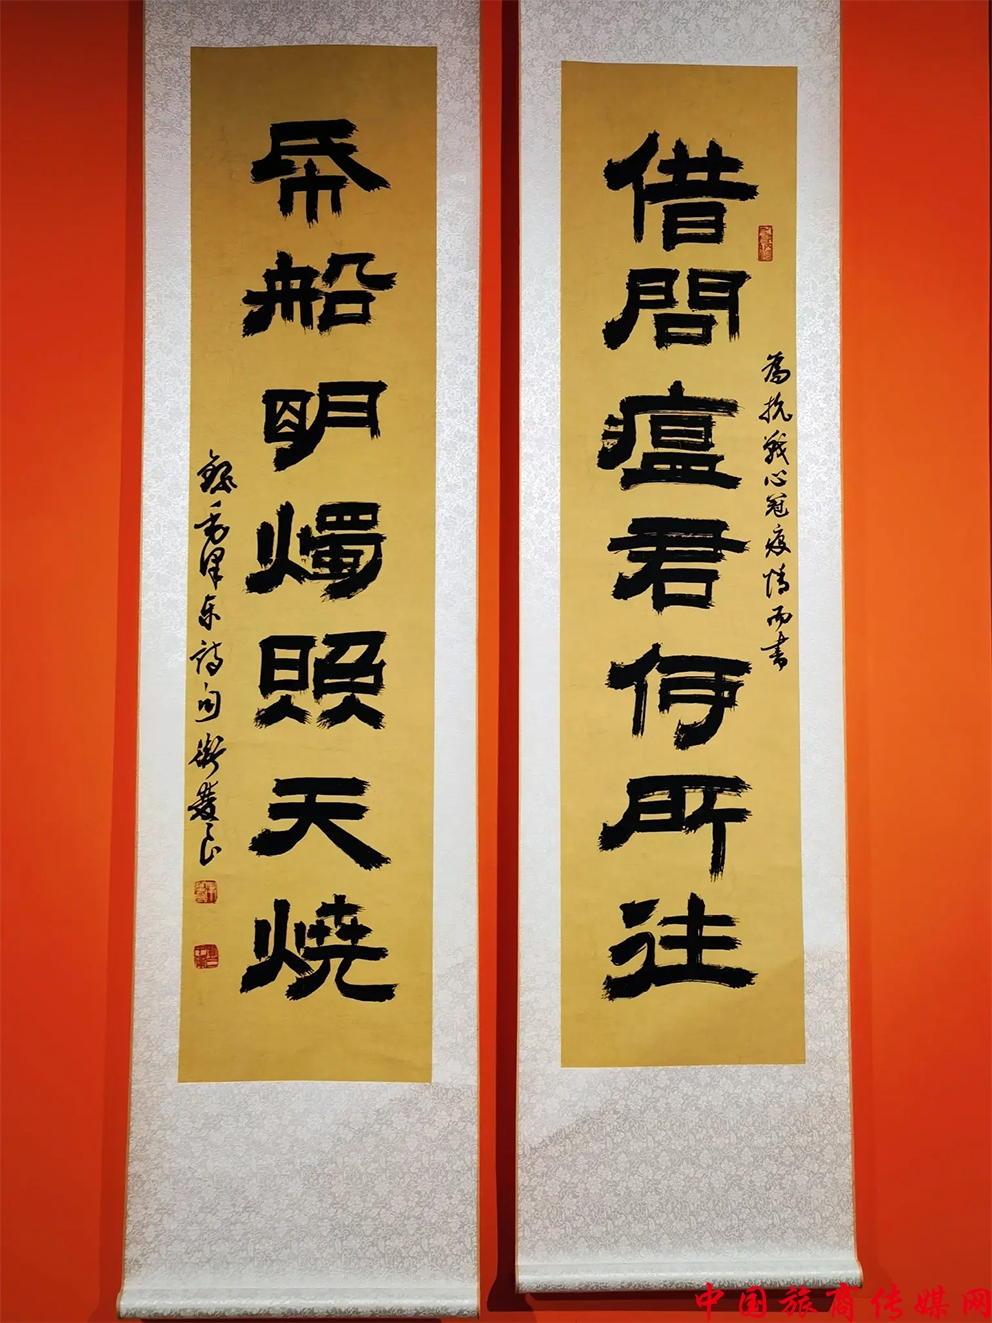 借問瘟君何所往
為抗戰心冠疫情而書
帋船明燭照天燒
錄毛澤东詩句
中国旅商传媒网